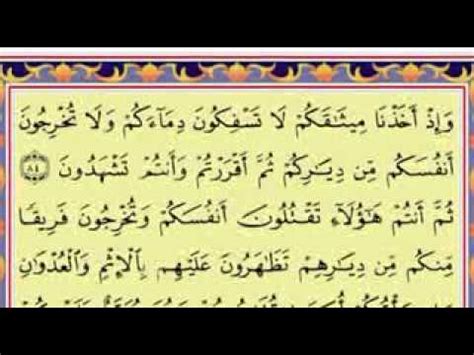 وَإِذْ أَخَذْنَا مِيثَٰقَكُمْ لَا تَسْفِكُونَ دِمَآءَكُمْ وَلَا تُخْرِجُونَ
أَنفُسَكُم مِّن دِيَٰرِكُمْ ثُمَّ أَقْرَرْتُمْ وَأَنتُمْ تَشْهَدُونَ ٨٤
ثُمَّ أَنتُمْ هَٰٓؤُلَآءِ تَقْتُلُونَ أَنفُسَكُمْ وَتُخْرِجُونَ فَرِيقًا
مِّنكُم مِّن دِيَٰرِهِمْ تَظَٰهَرُونَ عَلَيْهِم بِٱلْإِثْمِ وَٱلْعُدْوَٰنِ